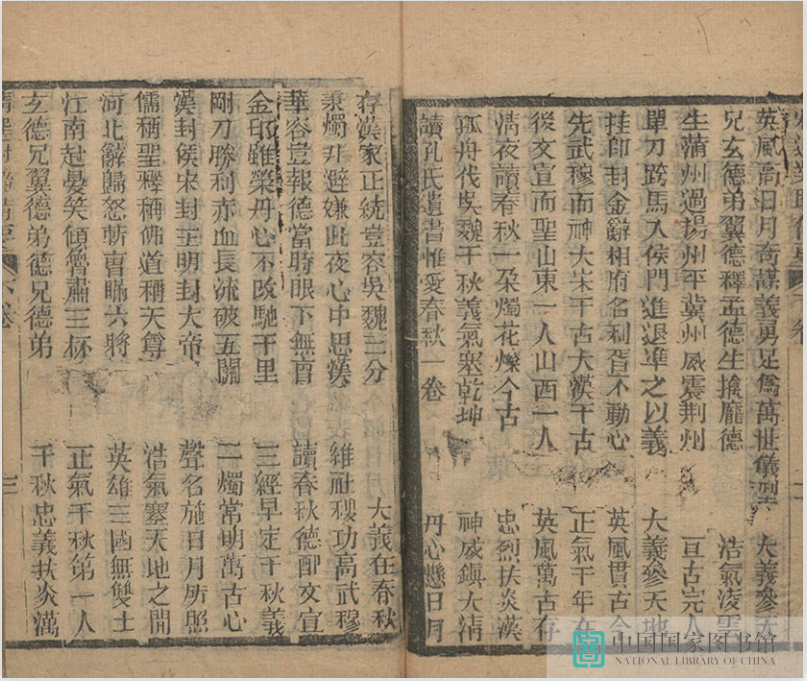 英風高日月奇謀義勇足爲萬世儀型　大義參天
兄玄德弟翼德釋孟德生擒龐德　浩氣凌雲
生蒲州過揚州平冀州威震荆州　亘古完人
單刀跨馬入侯門進退準之以義　大義參天地
挂印封金辭相府名利皆不動心　英風貫古今
先武穆而神大宋千古大漢千古　正氣千年在
後文宣而聖山東一人山西一人　英風萬古存
清夜讀春秋一朶燭花燦今古　忠烈扶炎漢
孤舟伐吳魏千秋義氣塞乾坤　神威鎭大清
讀孔氏遺書惟愛春秋一卷　丹心懸日月
存漢家正統豈容吳魏三分　大義在春秋
秉燭非避嫌此夜心中思漢　維社稷功高武穆
華容豈報德當時眼下無曹　讀春秋德配文宣
金印雖榮丹心不改馳千里　三經早定千秋義
剛刀勝利赤血長流破五關　一燭常明萬古心
漢封侯宋封王明封大帝　聲名施日月所照
儒稱聖釋稱佛道稱天尊　浩氣塞天地之間
河北辭歸怒斬曹瞞六將　英雄三國無雙士
江南赴宴笑傾魯肅三杯　正氣千秋第一人
玄德兄翼德弟德兄德弟　千秋忠義扶炎漢
下卷　三
中国国家图书馆
NATIONAL LIBRARY OF CHINA